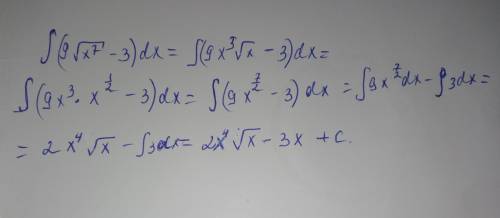 ∫(9√x⁷ - 3)dx = ∫(9x³√x - 3)dx =
∫(9x³ · x^(1/2) - 3)dx = ∫(9x^(7/2) - 3) dx = ∫9x^(7/2) dx - ∫3dx =
= 2x⁴√x - ∫3dx = 2x⁴√x - 3x + C.